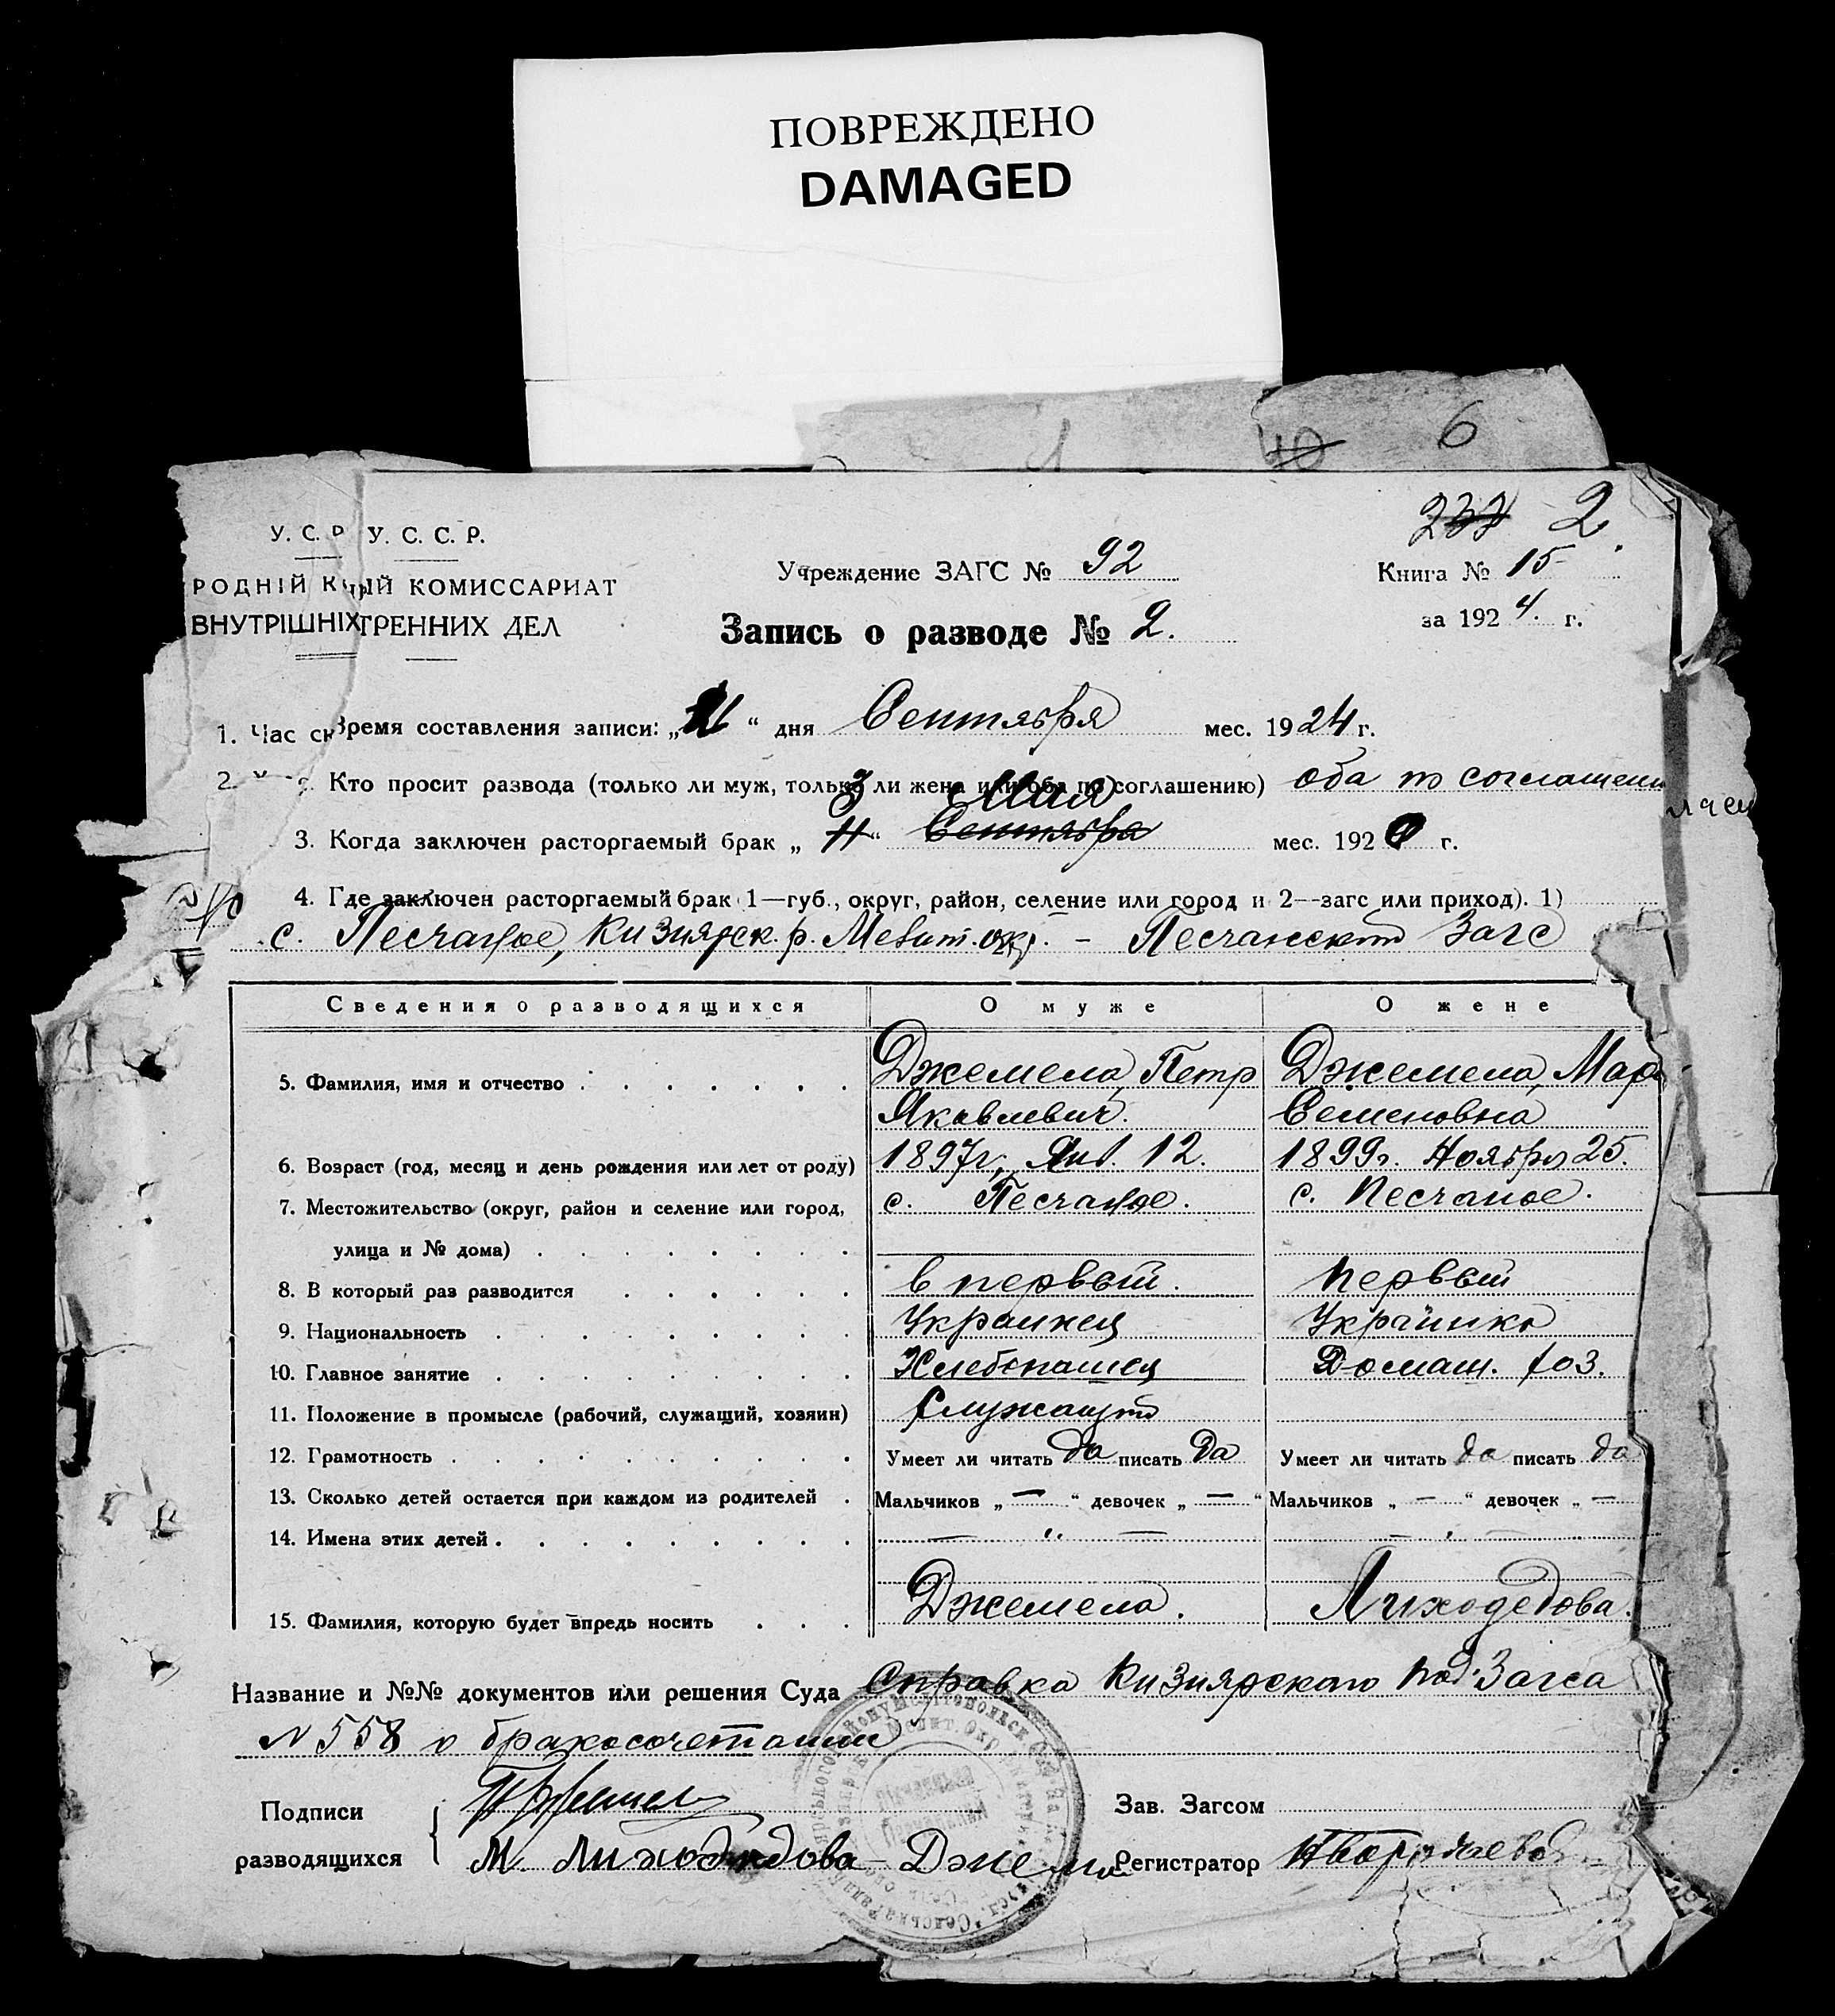 ПОВРЕЖДЕНО
DAMAGED
40 6
237 2
У. С. Р У. С. С. Р.
РОДНІЙ К ЫЙ КОМИССАРИАТ
ВНУТРІШНІХ ТРЕННИХ ДЕЛ
Учреждение ЗАГС № 92
Книга № 15
за 1924. г.
Запись о разводе № 2.
1. Час ск Время составления записи: „ “ дня Сентября мес. 1924 г.
2. Кто просит развода (только ли муж, только ли жена или оба по соглашению) оба по соглашени
3 Мая
3. Когда заключен расторгаемый брак „ 11 “ Сентября мес. 192 г.
4. Где заключен расторгаемый брак (1—губ., округ, район, селение или город и 2—загс или приход). 1)
с. Песчаное, Кизиярск. р. Мелит. окр. – Песчанский Загс
Сведения о разводящихся О муже О жене
5. Фамилия, имя и отчество Джемела, Петр Джемела, Мар
Яковлевич. Семеновна
6. Возраст (год, месяц и день рождения или лет от роду) 1897г., Янв. 12. 1899г. Ноября 25.
7. Местожительство (округ, район и селение или город, с. Песчаное. с. Песчаное.
улица и № дома)
8. В который раз разводится в первый. первый
9. Национальность Украинец Украинка
10. Главное занятие Хлебопашец Домаш. хоз.
11. Положение в промысле (рабочий, служащий, хозяин) Служащий
12. Грамотность Умеет ли читать да писать да Умеет ли читать да писать да
13. Сколько детей остается при каждом из родителей Мальчиков „ — “ девочек „ — “ Мальчиков „ — “ девочек „ —
14. Имена этих детей — — — —
15. Фамилия, которую будет впредь носить Джемела. Лиходедова.
Название и №№ документов или решения Суда Справка Кизиярского под'Загса
N 558 о бракосочетании
Подписи
разводящихся
М. Лиходедова – Джемела
Зав. Загсом
Регистратор